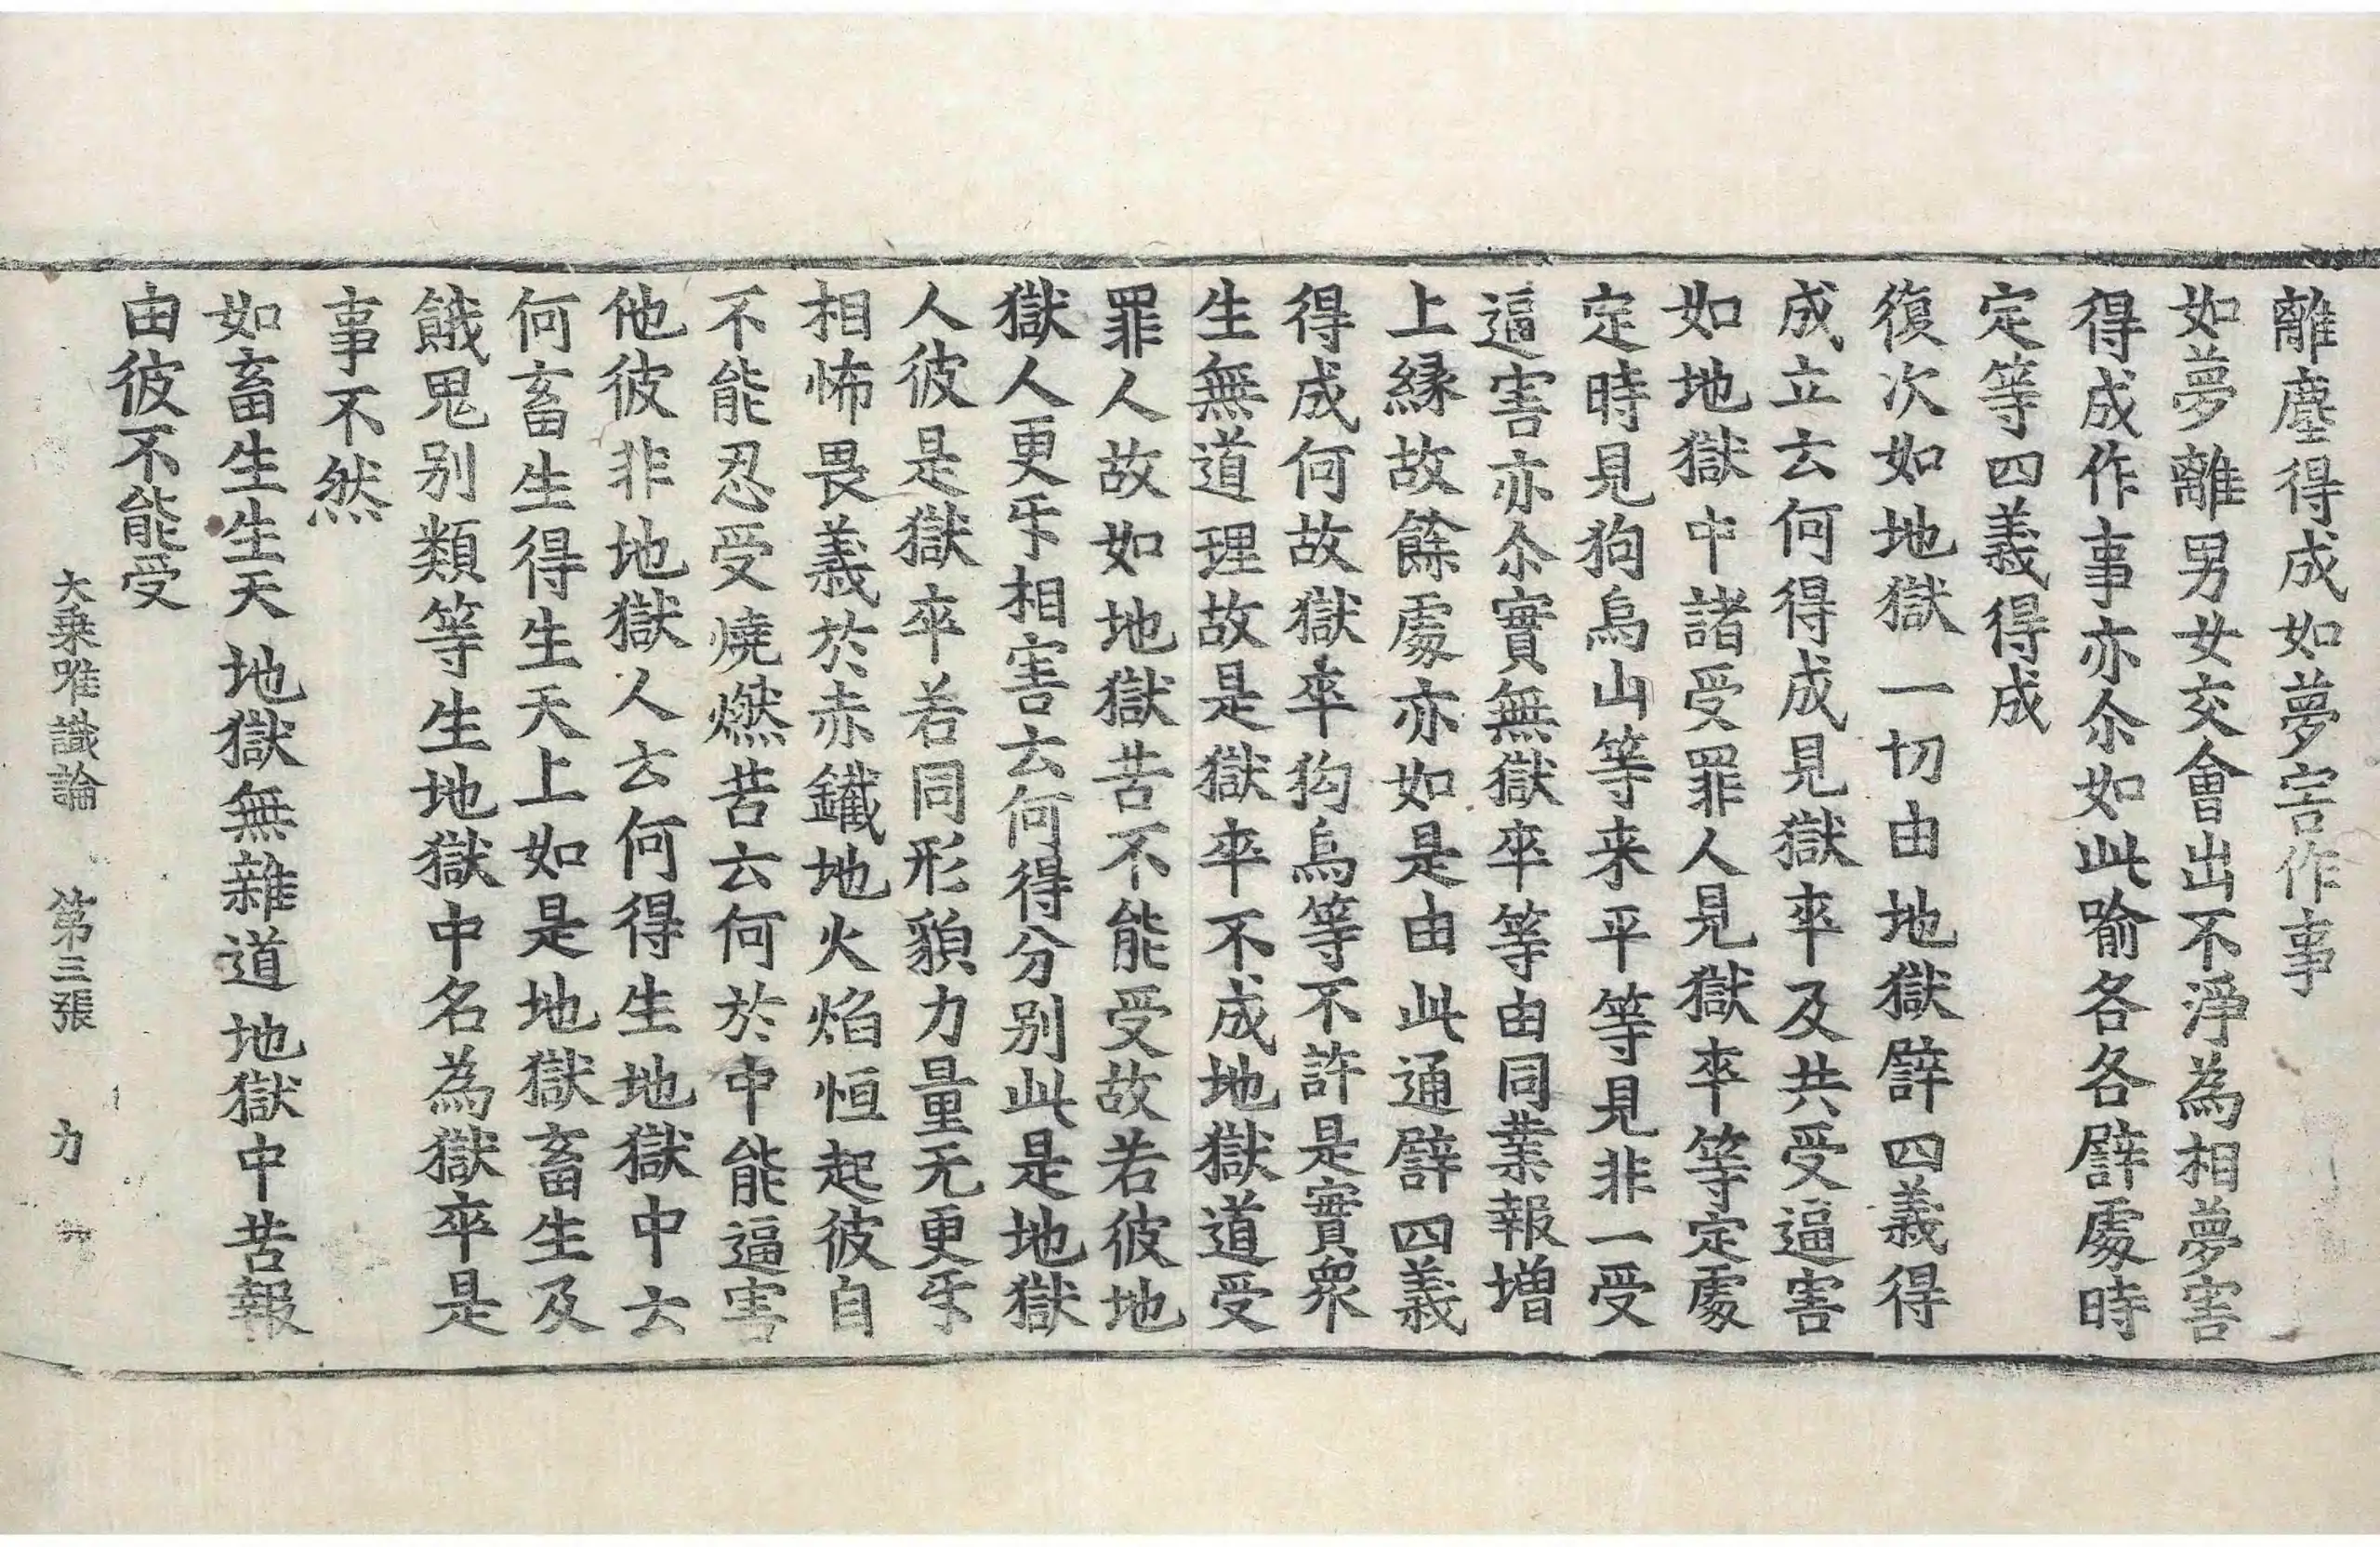 離塵得成如夢害作事
如夢離男女交會出不淨為相夢害
得成作事亦尒如此喻各各譬處時
定等四義得成
復次如地獄一切由地獄譬四義得
成立云何得成見獄卒及共受逼害
如地獄中諸受罪人見獄卒等定處
定時見狗烏山等来平等見非一受
逼害亦尒實無獄卒等由同業報增
上緣故餘處亦如是由此通譬四義
得成何故獄卒狗烏等不許是實衆
生無道理故是獄卒不成地獄道受
罪人故如地獄苦不能受故若彼地
獄人更㸦相害云何得分別此是地獄
人彼是獄卒若同形貌力量无更㸦
相怖畏義於赤鐵地火焰恒起彼自
不能忍受燒燃苦云何於中能逼害
他彼非地獄人云何得生地獄中云
何畜生得生天上如是地獄畜生及
餓鬼別類等生地獄中名為獄卒是
事不然
如畜生生天 地獄無雜道 地獄中苦報
由彼不能受
大乗唯識論 第三張 力